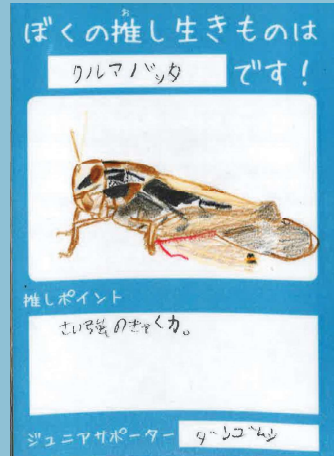 ぼくの推し生きものは
お
クルマバッタ
です!
推しポイント
さい強のきゃく力。
ジュニアサポーター
ダンゴムシ